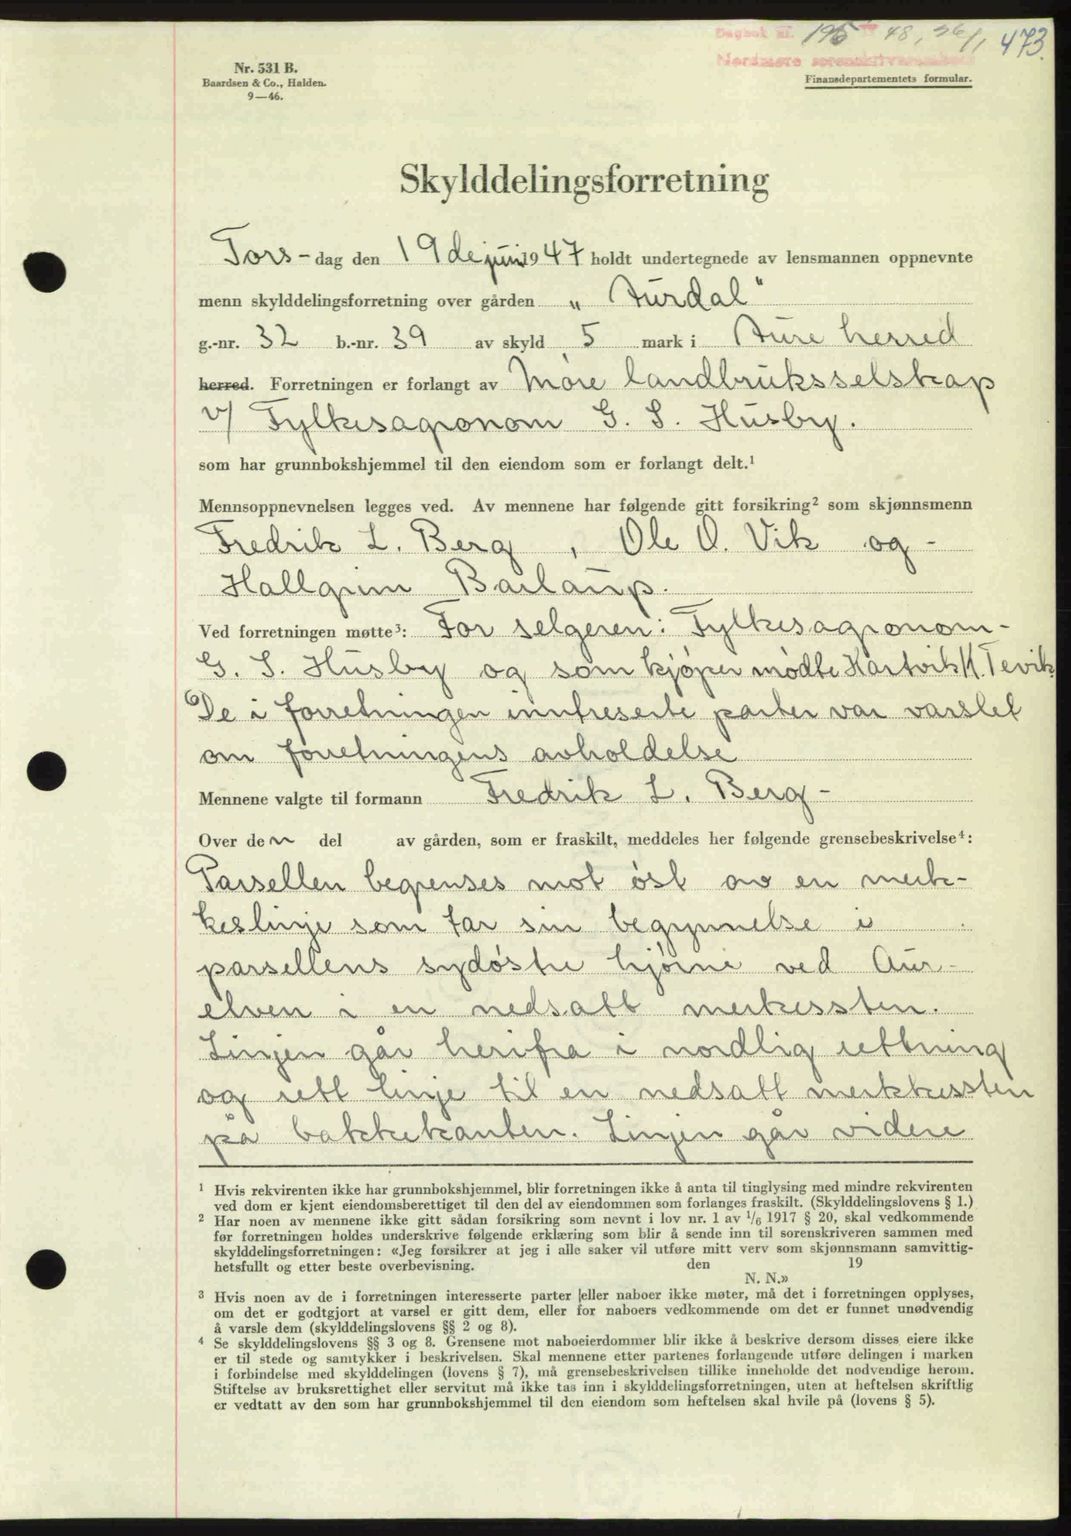 Dagbok nr. 195 19 48, 26/1 473.
Nordmøre sorenskriverembede
Nr. 531 B.
Baardsen & Co., Halden.
9—46.
Finansdepartementets formular.
Skylddelingsforretning
Tors-dag den 19de juni 1947 holdt undertegnede av lensmannen oppnevnte
menn skylddelingsforretning over gården „Aurdal“
g.-nr. 32 b.-nr. 39 av skyld 5 mark i Aure herred
herred. Forretningen er forlangt av Møre landbruksselskap
v/ Fylkesagronom G. S. Husby.
som har grunnbokshjemmel til den eiendom som er forlangt delt.¹
Mennsoppnevnelsen legges ved. Av mennene har følgende gitt forsikring² som skjønnsmenn
Fredrik L. Berg, Ole O. Vik og -
Hallgrim Barlaup.
Ved forretningen møtte³: For selgeren: Fylkesagronom-
G. S. Husby og som kjøper mødte Hartvik K. Tevik.
De i forretningen inntreserte parter var varslet
om forretningens avholdelse
Mennene valgte til formann Fredrik L. Berg -
Over den del av gården, som er fraskilt, meddeles her følgende grensebeskrivelse⁴:
Parsellen begrenses mot øst av en merk-
keslinje som tar sin begynnelse i
parsellens sydøstre hjørne ved Aur-
elven i en nedsatt merkessten.
Linjen går herifra i nordlig rettning
og rett linje til en nedsatt merkkessten
på bakkekanten. Linjen går videre
¹ Hvis rekvirenten ikke har grunnbokshjemmel, blir forretningen ikke å anta til tinglysing med mindre rekvirenten
ved dom er kjent eiendomsberettiget til den del av eiendommen som forlanges fraskilt. (Skylddelingslovens § 1.)
² Har noen av mennene ikke gitt sådan forsikring som nevnt i lov nr. 1 av 1/6 1917 § 20, skal vedkommende
før forretningen holdes underskrive følgende erklæring som blir å sende inn til sorenskriveren sammen med
skylddelingsforretningen: «Jeg forsikrer at jeg i alle saker vil utføre mitt verv som skjønnsmann samvittig-
hetsfullt og etter beste overbevisning. den 19
N. N.»
³ Hvis noen av de i forretningen interesserte parter eller naboer ikke møter, må det i forretningen opplyses,
om det er godtgjort at varsel er gitt dem, eller for naboers vedkommende om det er funnet unødvendig
å varsle dem (skylddelingslovens §§ 2 og 8).
⁴ Se skylddelingslovens §§ 3 og 8. Grensene mot naboeierdommer blir ikke å beskrive dersom disses eiere ikke
er til stede og samtykker i beskrivelsen. Skal mennene etter partenes forlangende utføre delingen i marken
i forbindelse med skylddelingen (lovens § 7), må grensebeskrivelsen tillike inneholde det nødvendige herom.
Stiftelse av bruksrettighet eller servitut må ikke tas inn i skylddelingsforretningen, uten at heftelsen skriftlig
er vedtatt av den som har grunnbokshjemmel til den eiendom som heftelsen skal hvile på (lovens § 5).